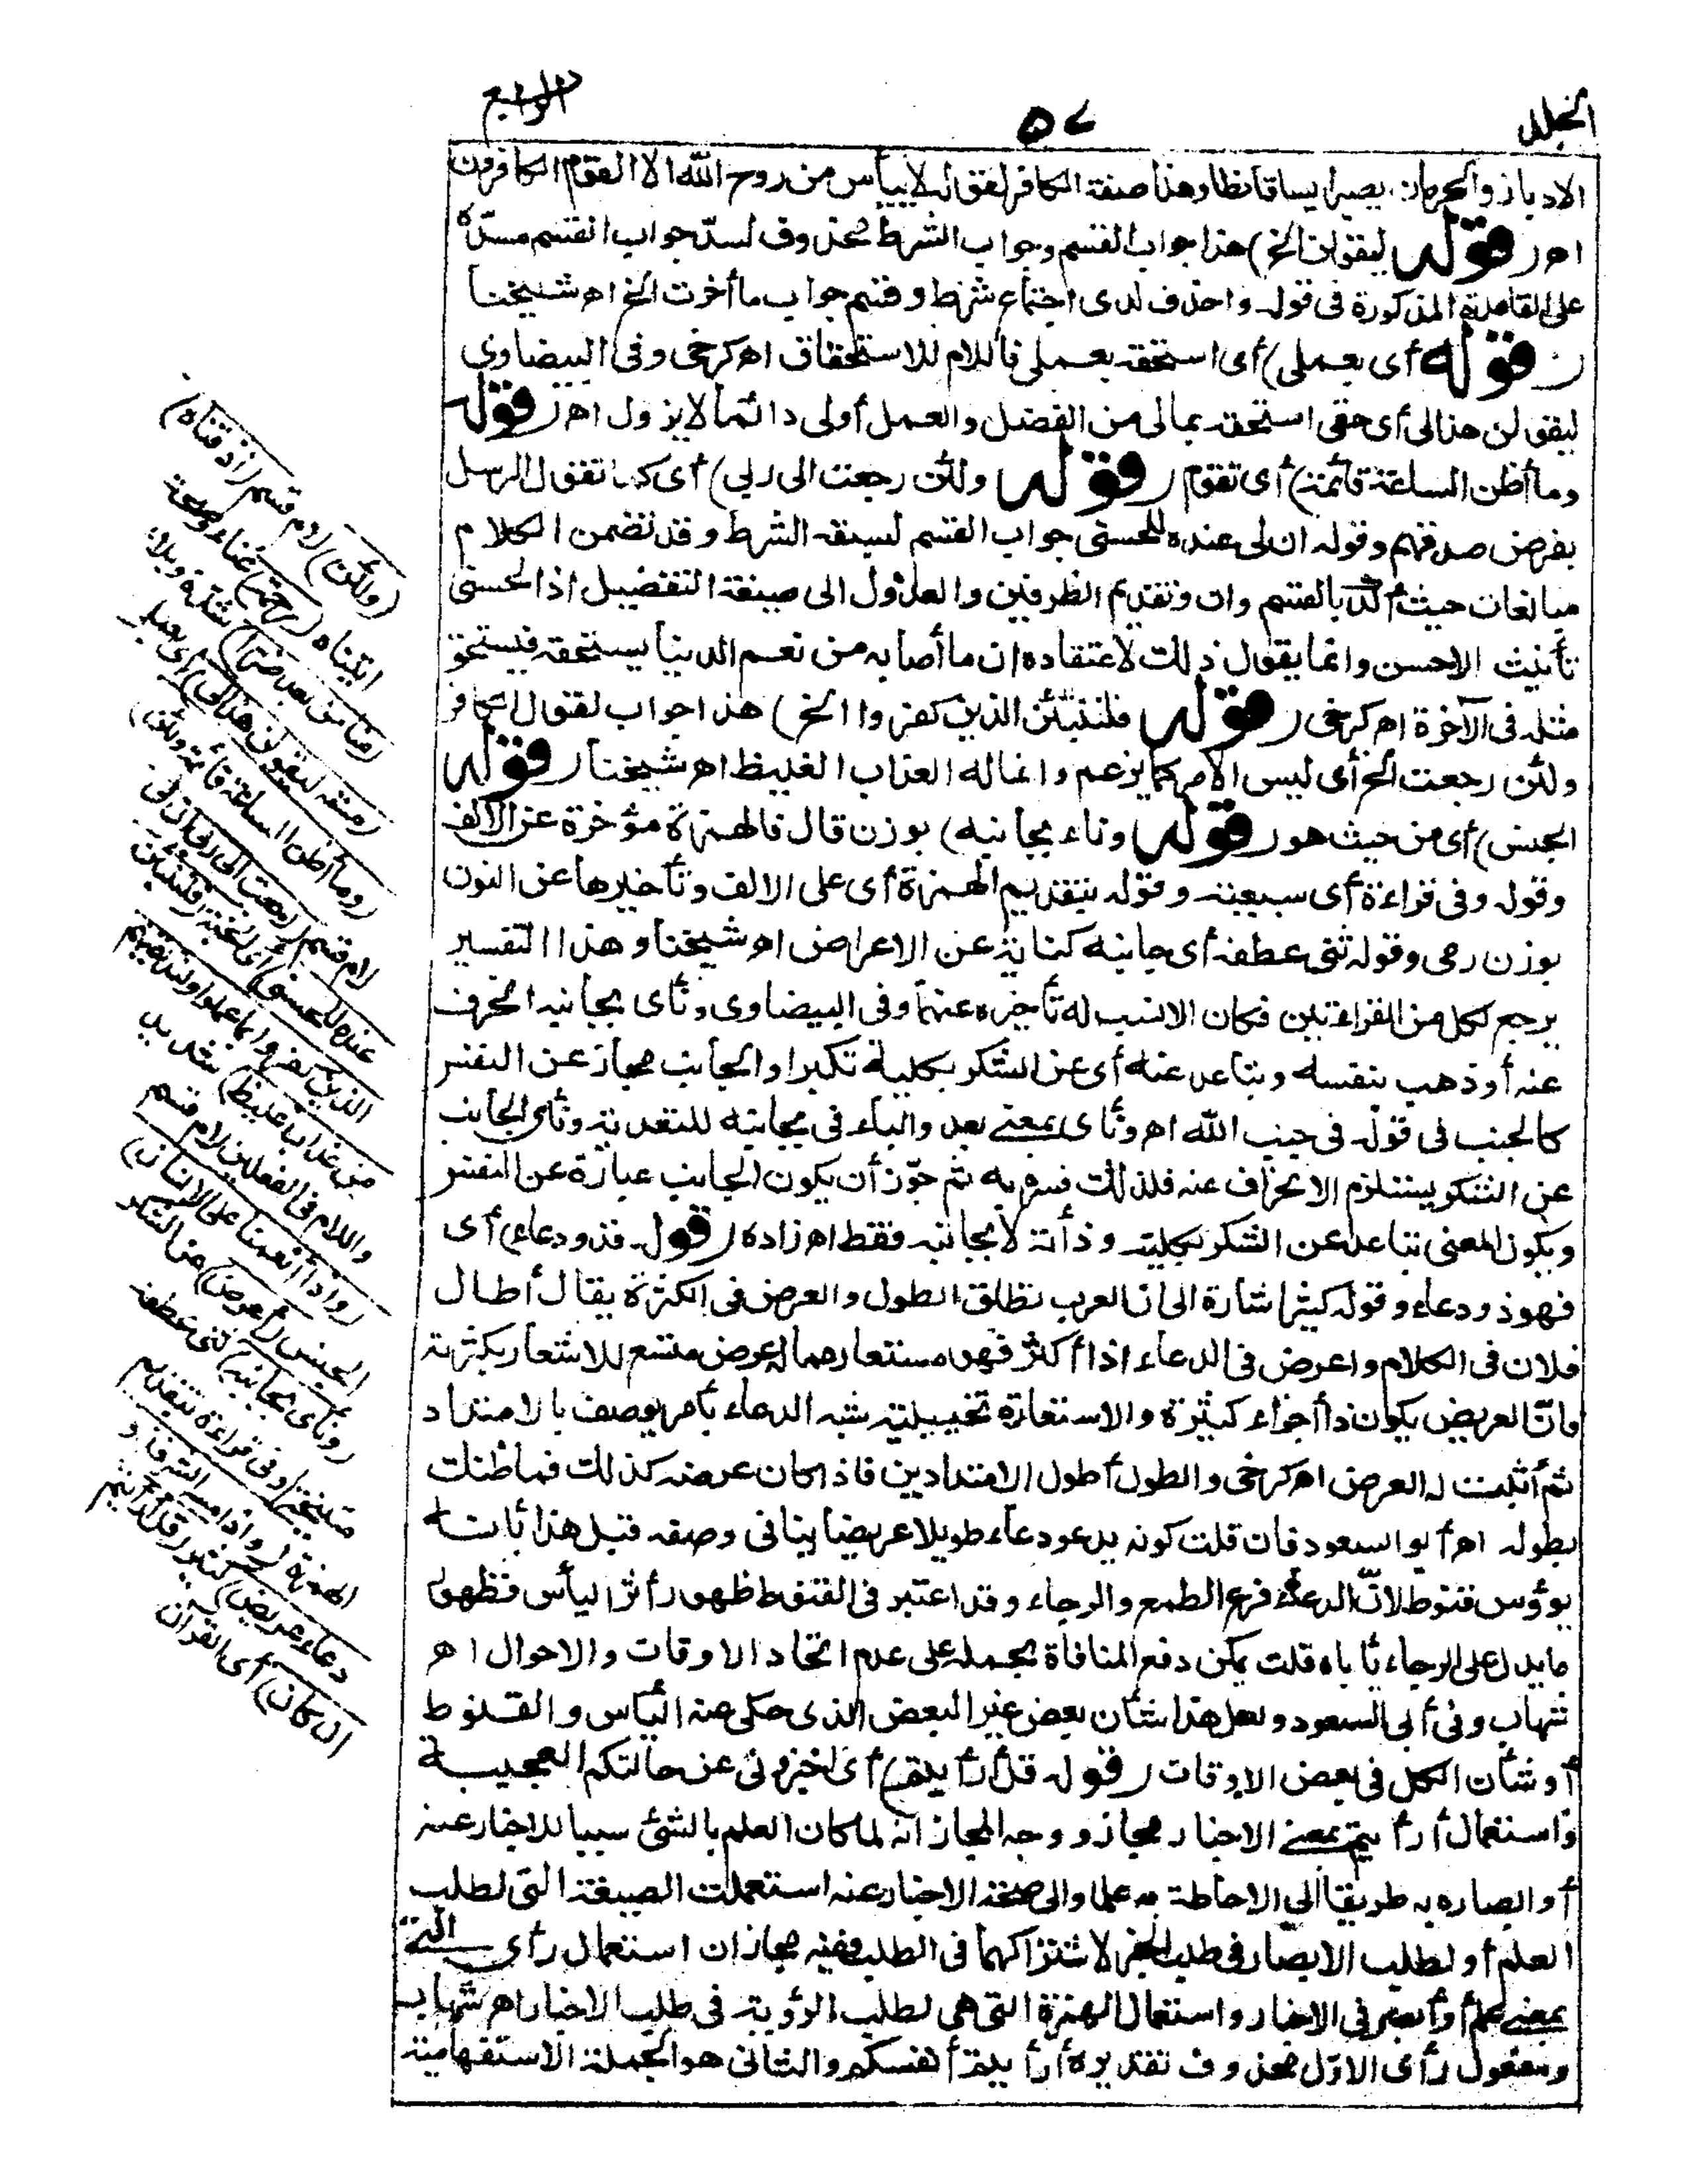 الجلد
٥٧
الرابع
الادبار والحرمان يصير ايساقانطا وهذا صفة الكافر لقوله لا ييأس من روح الله الا القوم الكافرون
اهـ (قوله ليقولن الخ) هذا جواب القسم وجواب الشرط محذوف لسد جواب القسم مسده
على القاعدة المذكورة فى قوله واحذف لدى اجتماع شرط وقسم جواب ما أخرت الخ اهـ شيخنا
(قوله أى بعملى) أى استحقه بعملى فاللام للاستحقاق اهـ كرخى وفى البيضاوى
ليقولن هذا لى أى حقى استحقه بمالى من الفضل والعمل أولى دائما لا يزول اهـ (قوله
وما أظن الساعة قائمة) أى تقوم (قوله ولئن رجعت الى ربى) أى كما تقول الرسل
بفرض صدقهم وقوله ان لى عنده للحسنى جواب القسم لسبقه الشرط وقد تضمن الكلام
مبالغات حيث أكد بالقسم وان وتقديم الظرفين والعدول الى صيغة التفضيل اذ الحسنى
تأنيث الاحسن وانما يقول ذلك لاعتقاده ان ما أصابه من نعم الدنيا يستحقه فيستحق
مثله فى الآخرة اهـ كرخى (قوله فلننبئن الذين كفروا الخ) هذا جواب لقول الكافر
ولئن رجعت الخ أى ليس الامر كما يزعم وانما له العذاب الغليظ اهـ شيخنا (قوله
الجنس) أى من حيث هو (قوله وناء بجانبه) بوزن قال فالهمزة مؤخرة عن الالف
وقوله وفى قراءة أى سبعية وقوله بتقديم الهمزة أى على الالف وتأخيرها عن النون
بوزن رمى وقوله ثنى عطفه أى جانبه كناية عن الاعراض اهـ شيخنا وهذا التفسير
يرجع لكل من القراءتين فكان الانسب له تأخيره عنهما وفى البيضاوى ونأى بجانبه انحرف
عنه أو ذهب بنفسه وتباعد عنه أى عن الشكر بكليته تكبرا والجانب مجاز عن النفس
كالجنب فى قوله فى جنب الله اهـ ونأى بمعنى بعد والباء فى بجانبه للتعدية ونأى الجانب
عن الشكر يستلزم الانحراف عنه فلذلك فسر به ثم جوز أن يكون الجانب عبارة عن النفس
ويكون المعنى تباعد عن الشكر بكليته وذاته لا بجانبه فقط اهـ زاده (قوله فذو دعاء) أى
فهو ذو دعاء وقوله كثير اشارة الى ان العرب تطلق الطول والعرض فى الكثرة يقال أطال
فلان فى الكلام واعرض فى الدعاء اذا أكثر فهو مستعار مما له عرض متسع للاشعار بكثرته
فان العريض يكون ذا أجزاء كثيرة والاستعارة تخييلية شبه الدعاء بأمر يوصف بالامتداد
ثم أثبت له العرض اهـ كرخى والطول أطول الامتدادين فاذا كان عرضه كذلك فما ظنك
بطوله اهـ أبو السعود فان قلت كونه يدعو دعاء طويلا عريضا ينافى وصفه قبل هذا بأنه
يؤوس قنوط لان الدعاء فرع الطمع والرجاء وقد اعتبر فى القنوط ظهور أثر اليأس فظهور
ما يدل على الرجاء يأباه قلت يمكن دفع المنافاة بحمله على عدم اتحاد الاوقات والاحوال اهـ
شهاب وفى أبى السعود ولعل هذا شأن بعض غير البعض الذى حكى عنه اليأس والقنوط
أو شأن الكل فى بعض الاوقات (قوله قل أرأيتم) أى اخبرونى عن حالتكم العجيبة
واستعمال أرأيتم بمعنى الاخبار مجاز ووجه المجاز انه لما كان العلم بالشئ سببا للاخبار عنه
أو ابصاره به طريقا الى الاحاطة به علما والى صحة الاخبار عنه استعملت الصيغة التى لطلب
العلم أو لطلب الابصار فى طلب الخبر لاشتراكهما فى الطلب ففيه مجازان استعمال رأى التى
بمعنى علم أو أبصر فى الاخبار واستعمال الهمزة التى هى لطلب الرؤية فى طلب الاخبار اهـ شهاب
ومفعول رأى الاول محذوف تقديره أرأيتم أنفسكم والثانى هو الجملة الاستفهامية
(ولئن) لام قسم (أذقناه)
اتيناه (رحمة) غناء وصحة
(منا من بعد ضراء) شدة وبلاء
(مسته ليقولن هذا لى) أى بعملى
(وما أظن الساعة قائمة ولئن)
لام قسم (رجعت الى ربى ان لى
عنده للحسنى) أى الجنة (فلننبئن
الذين كفروا بما عملوا ولنذيقنهم
من عذاب غليظ) شديد
واللام فى الفعلين لام قسم
(واذا أنعمنا على الانسان)
الجنس (أعرض) عن الشكر
(ونأى بجانبه) ثنى عطفه
متبخترا وفى قراءة بتقديم
الهمزة (واذا مسه الشر فذو
دعاء عريض) كثير (قل أرأيتم
ان كان) أى القرآن